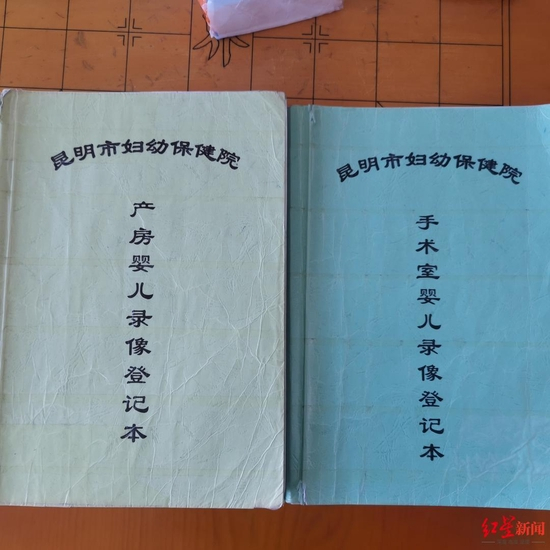 昆明市妇幼保健院
产房婴儿录像登记本
昆明市妇幼保健院
手术室婴儿录像登记本
红星新闻